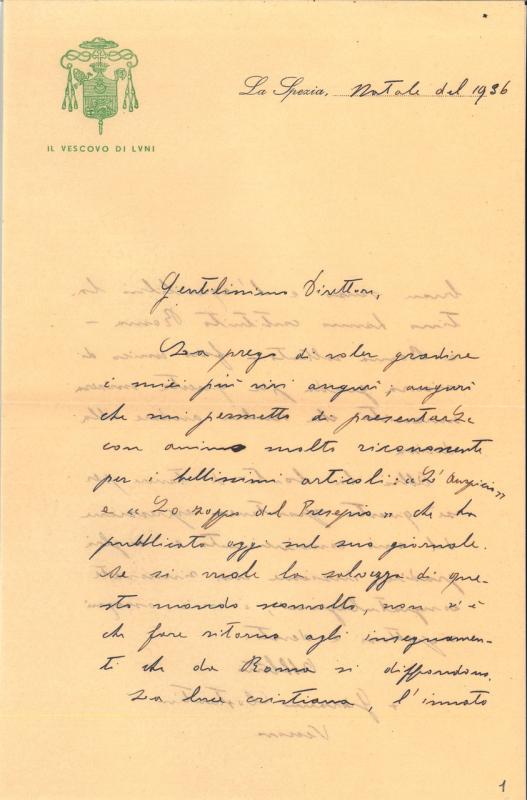 La Spezia, Natale del 1936
IL VESCOVO DI LVNI
Gentilissimo Direttore,
La prego di voler gradire
i miei più vivi auguri, auguri
che mi permetto di presentarLe
con animo molto riconoscente
per i bellissimi articoli: "L'Auspicio"
e "Lo zoppo del Presepio" che ha
pubblicato oggi sul suo giornale.
Se si vuole la salvezza di que-
sto mondo sconvolto, non v'è
che fare ritorno agli insegnamen-
ti che da Roma si diffondono.
La luce cristiana, l'innato
1